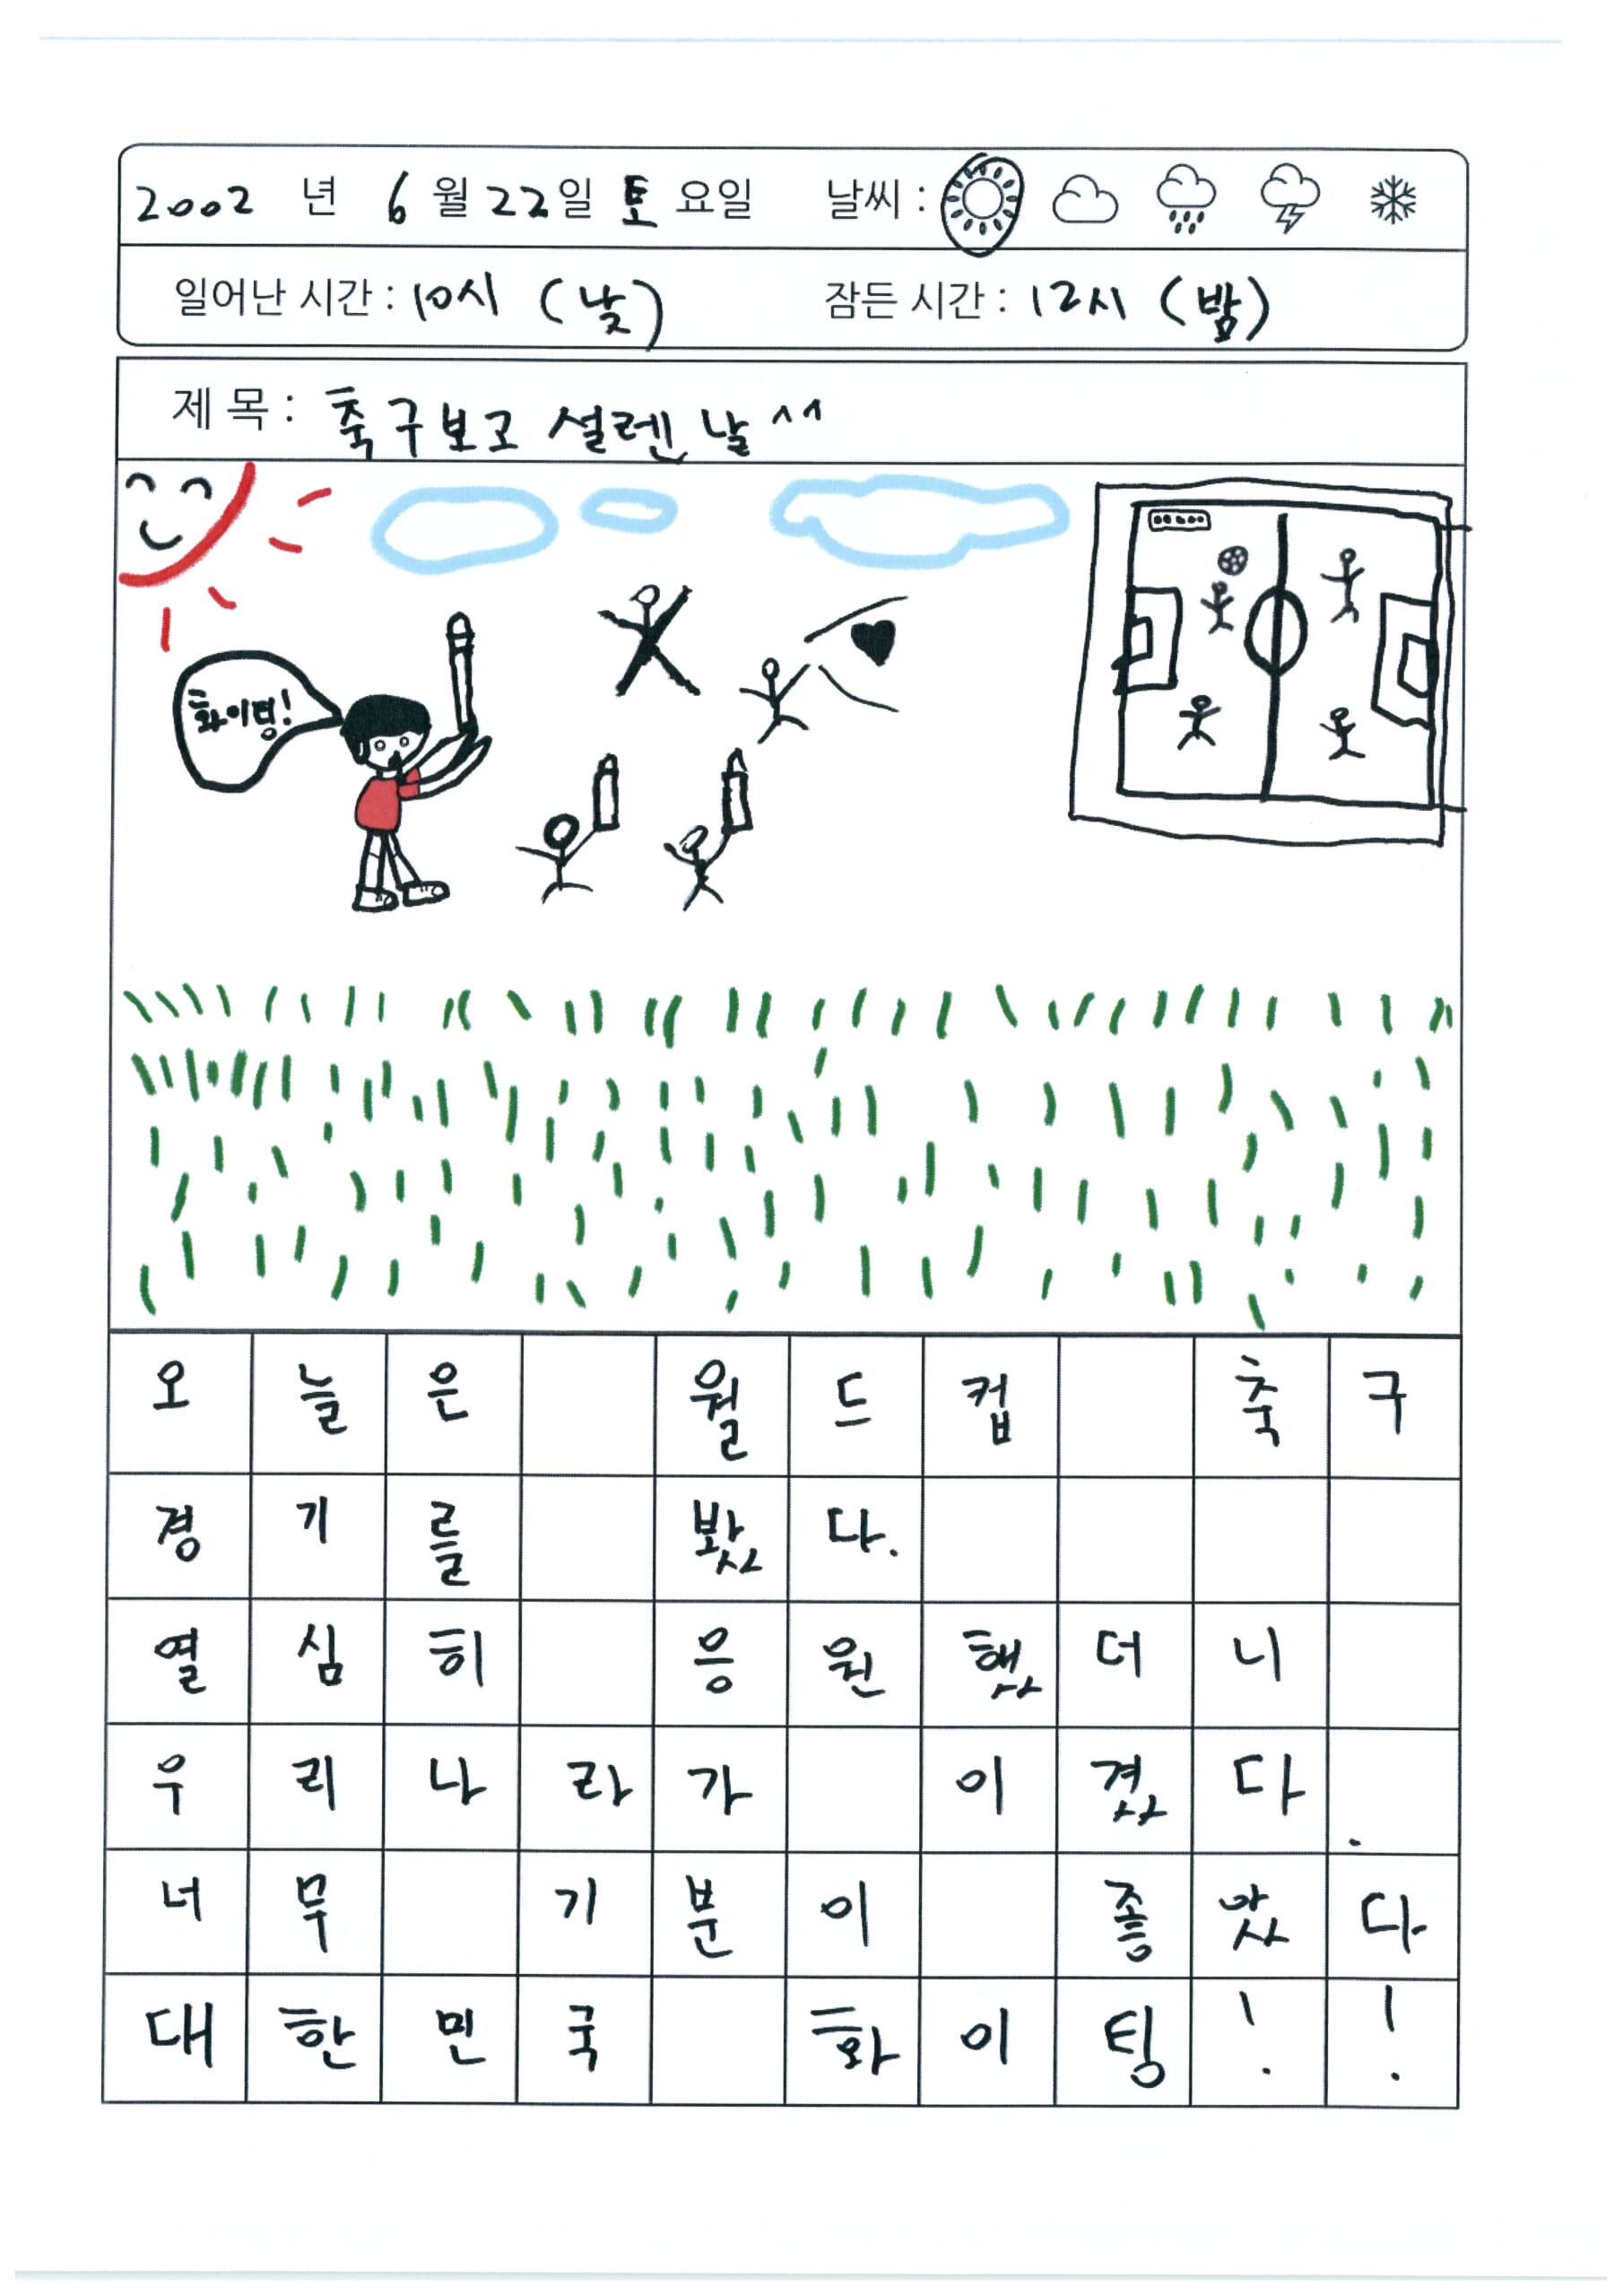 2002 년 6 월 22일 토 요일 날씨 :
일어난 시간 : 10시 (낮) 잠든 시간 : 12시 (밤)
제 목 : 축구보고 설렌 날 ^^
화이팅!
오늘은 월드컵 축구
경기를 봤다.
열심히 응원했더니
우리나라가 이겼다.
너무 기분이 좋았다
대한민국 화이팅!!